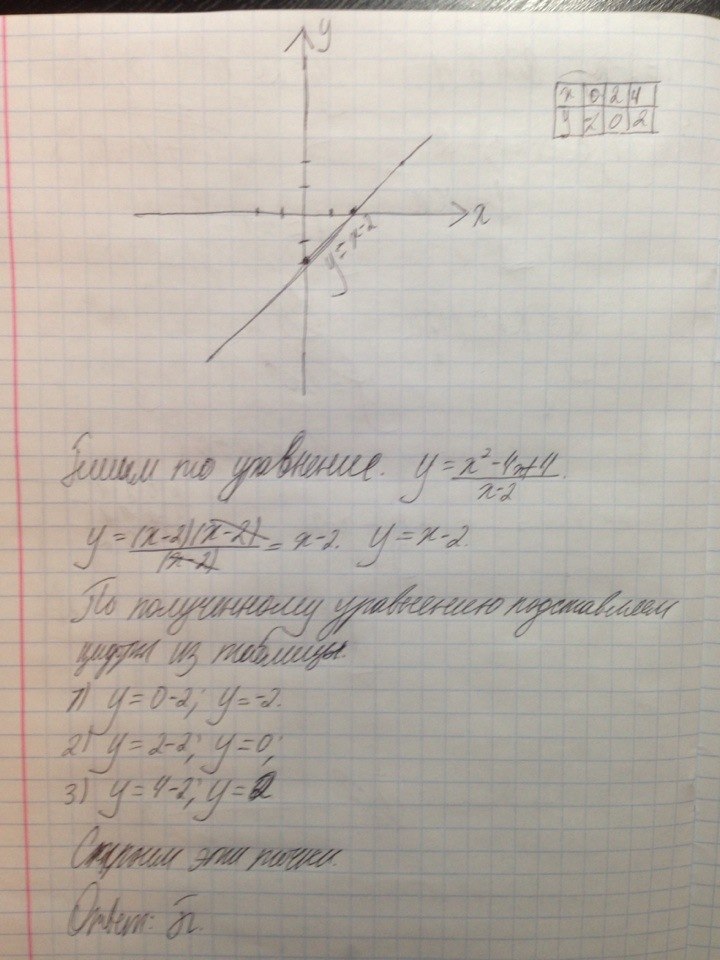 y
x 0 2 4
y -2 0 2
x
y = x-2
уравнение. y = x²-4x+4 / x-2
y = (x-2)(x-2) / (x-2) = x-2. y = x-2.
По полученному уравнению подставляем
цифры из таблицы.
1) y = 0-2; y = -2.
2) y = 2-2; y = 0;
3) y = 4-2; y = 2
эти точки.
Ответ: Б.